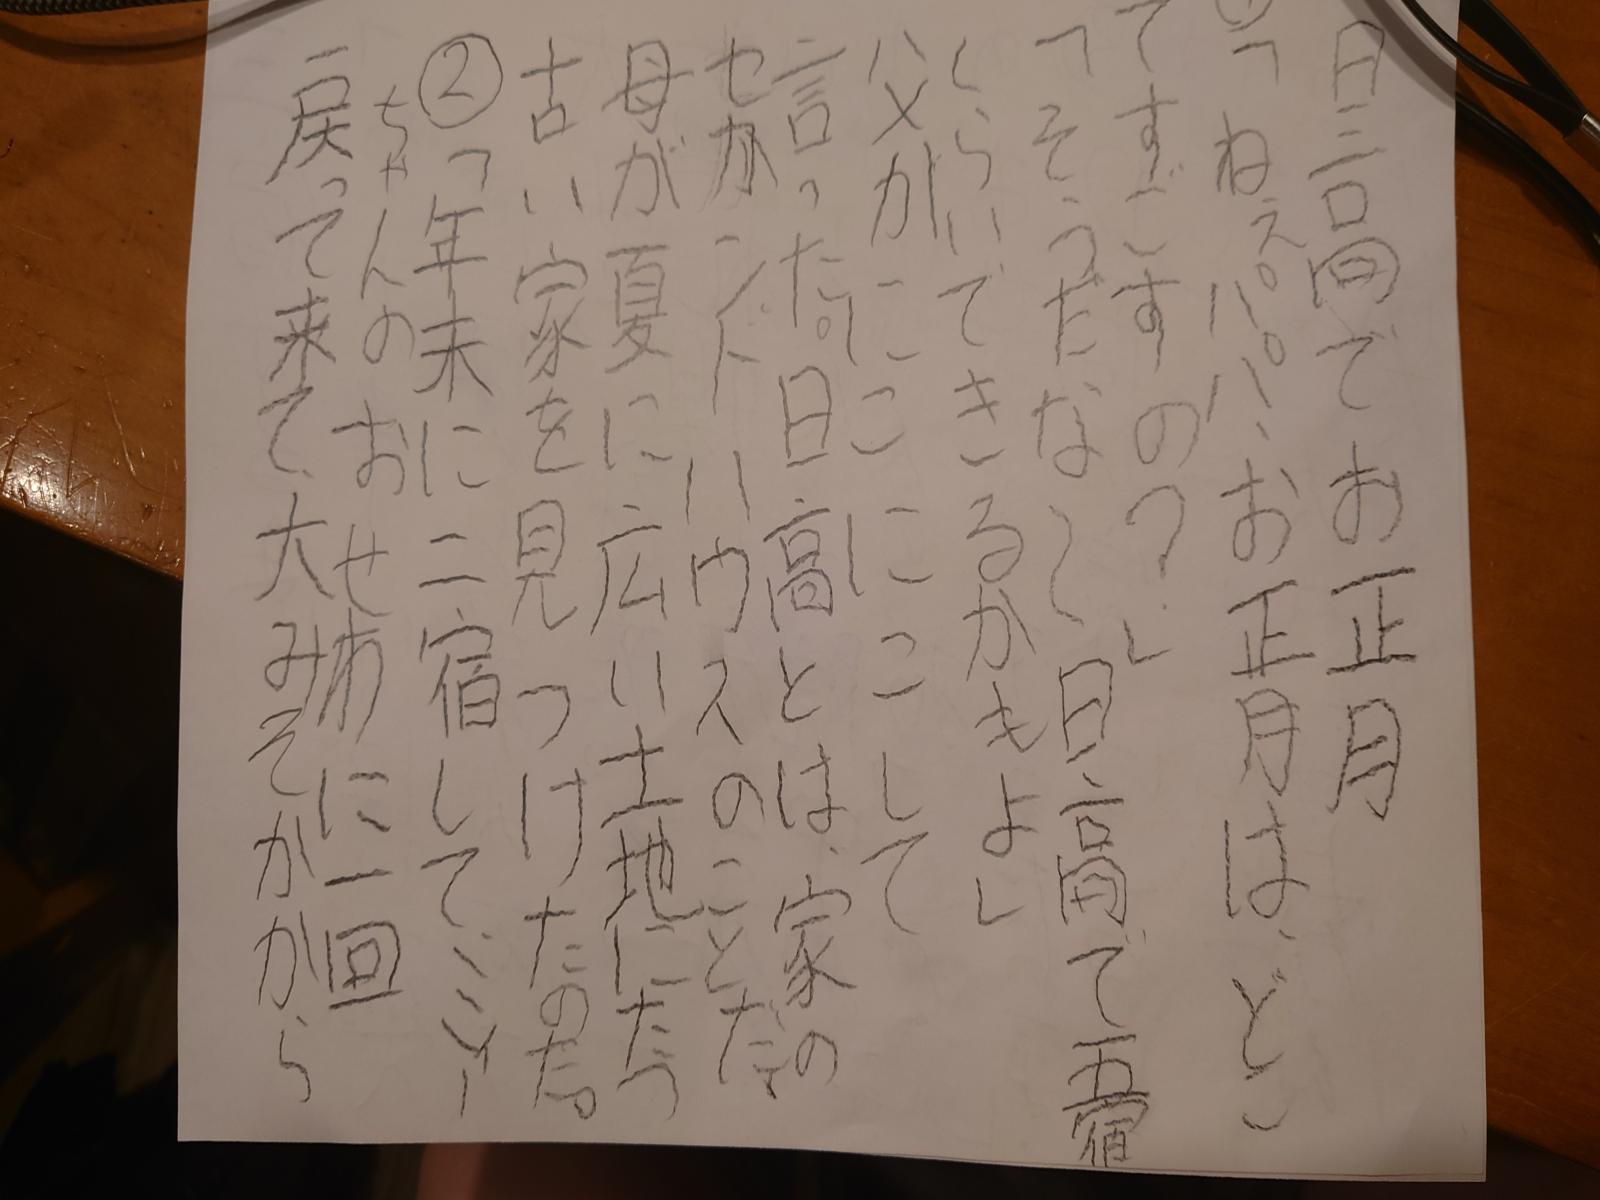 日高でお正月
①「ねえパパ、お正月は、どこ
ですごすの?」
「そうだな〜日高で五宿
くらいできるかもよ」
父がにこにこして
言った。日高とは、家の
セカンドハウスのことだ。
母が夏に広い土地にたつ
古い家を見つけたのだ。
②「年末に二宿して、ジジー
ちゃんのおせちに一回
戻って来て、大みそかから